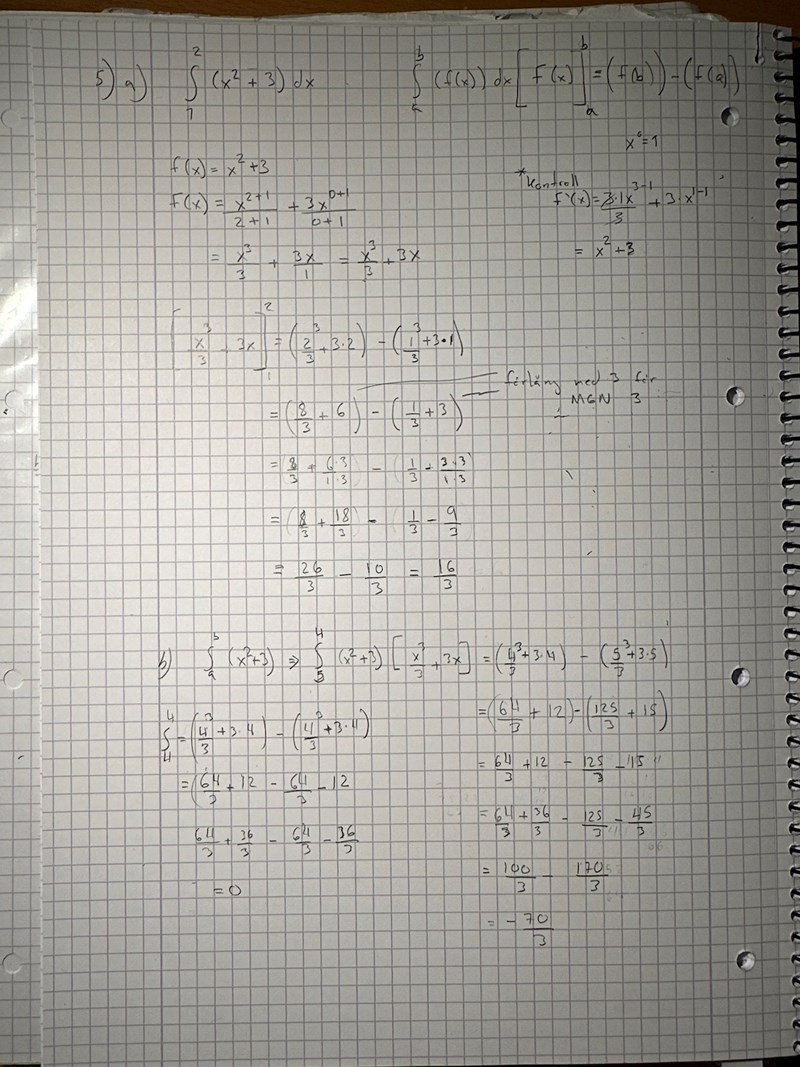 5) a) ∫₁² (x² + 3) dx    ∫ₐᵇ (f(x)) dx [F(x)]ₐᵇ = (f(b)) - (f(a))
x⁰ = 1
f(x) = x² + 3
F(x) = x²⁺¹/2+1 + 3x⁰⁺¹/0+1
= x³/3 + 3x/1 = x³/3 + 3x
* Kontroll
F'(x) = 3·1x³⁻¹/3 + 3·x¹⁻¹
= x² + 3
[x³/3 + 3x]₁² = (2³/3 + 3·2) - (1³/3 + 3·1)
= (8/3 + 6) - (1/3 + 3)
förläng med 3 för
MGN 3
= 8/3 + 6·3/1·3 - (1/3 + 3·3/1·3)
= (8/3 + 18/3) - 1/3 - 9/3
= 26/3 - 10/3 = 16/3
b) ∫ₐᵇ (x²+3) ⇒ ∫₅⁴ (x²+3) [x³/3 + 3x] = (4³/3 + 3·4) - (5³/3 + 3·5)
= (64/3 + 12) - (125/3 + 15)
= 64/3 + 12 - 125/3 - 15
= 64/3 + 36/3 - 125/3 - 45/3
= 100/3 - 170/3
= -70/3
∫₄⁴ = (4³/3 + 3·4) - (4³/3 + 3·4)
= (64/3 + 12 - 64/3 - 12
64/3 + 36/3 - 64/3 - 36/3
= 0